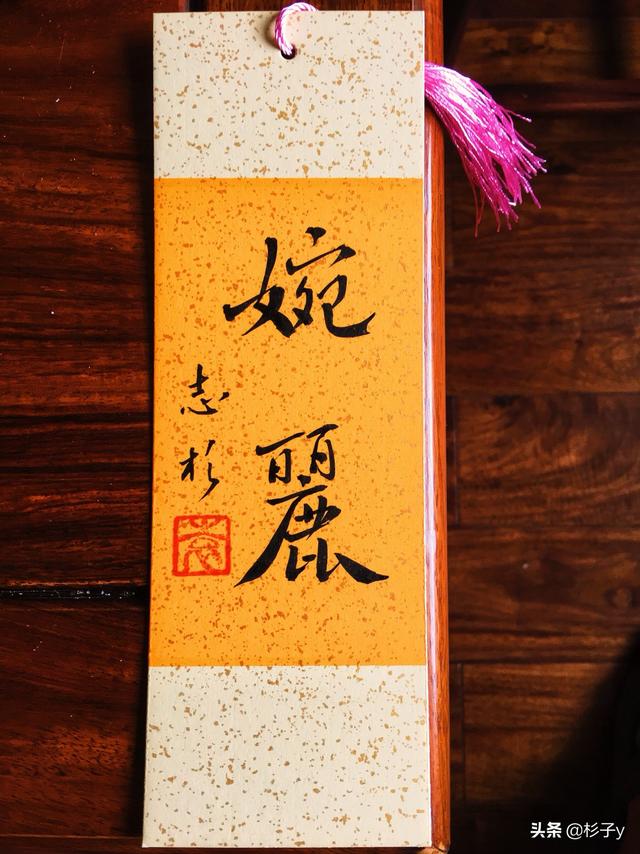 婉麗
志杉
头条 @杉子y